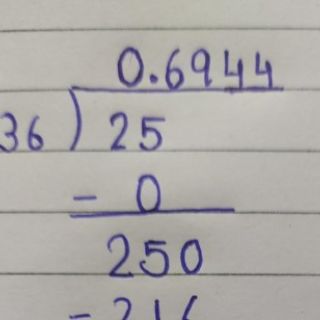 0.6944
36 ) 25
- 0
250
- 216